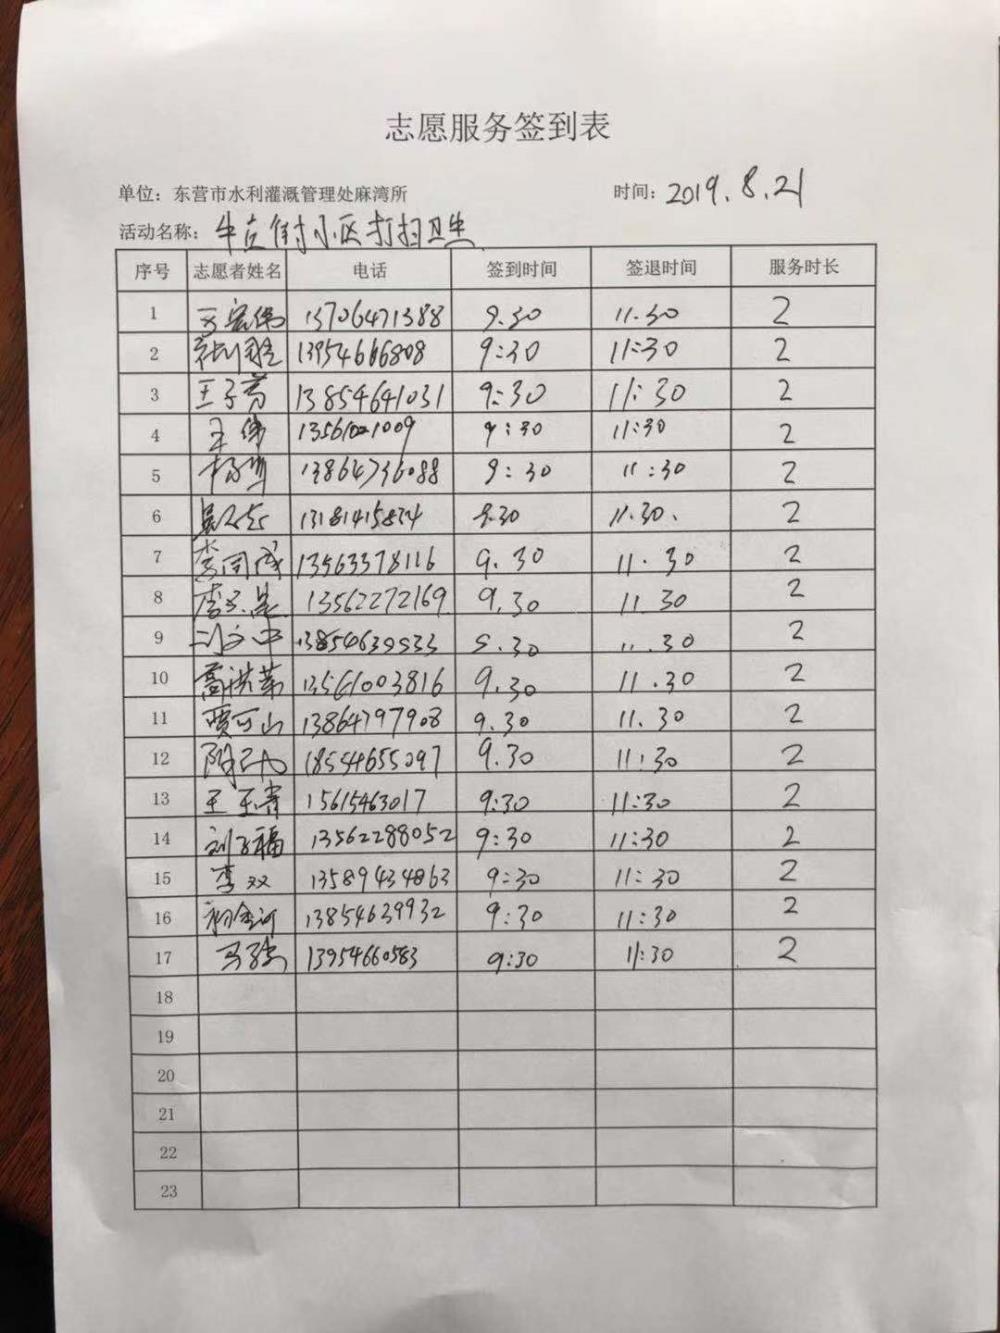 志愿服务签到表
单位：东营市水利灌溉管理处麻湾所 时间：2019.8.21
活动名称：牛庄街小区打扫卫生
序号 志愿者姓名 电话 签到时间 签退时间 服务时长
1 13706471388 9.30 11.30 2
2 13954666808 9:30 11:30 2
3 王子芳 13854641031 9:30 11:30 2
4 王伟 13561021009 9:30 11:30 2
5 13864736088 9:30 11:30 2
6 13181415834 9.30 11.30. 2
7 李同成 13563378116 9.30 11.30 2
8 13562272169 9.30 11.30 2
9 13854639533 9.30 11.30 2
10 13561003816 9.30 11.30 2
11 贾可山 13864797908 9.30 11.30 2
12 18554655097 9.30 11:30 2
13 王玉青 15615463017 9:30 11:30 2
14 13562288052 9:30 11:30 2
15 李双 13589434863 9:30 11:30 2
16 13854639932 9:30 11:30 2
17 13954660583 9:30 11:30 2
18
19
20
21
22
23